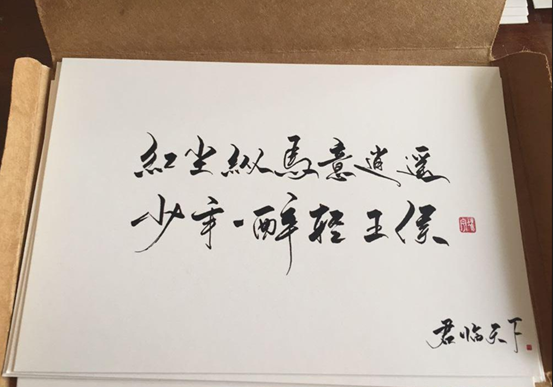 红尘纵马意逍遥
少年一醉轻王侯
君临天下